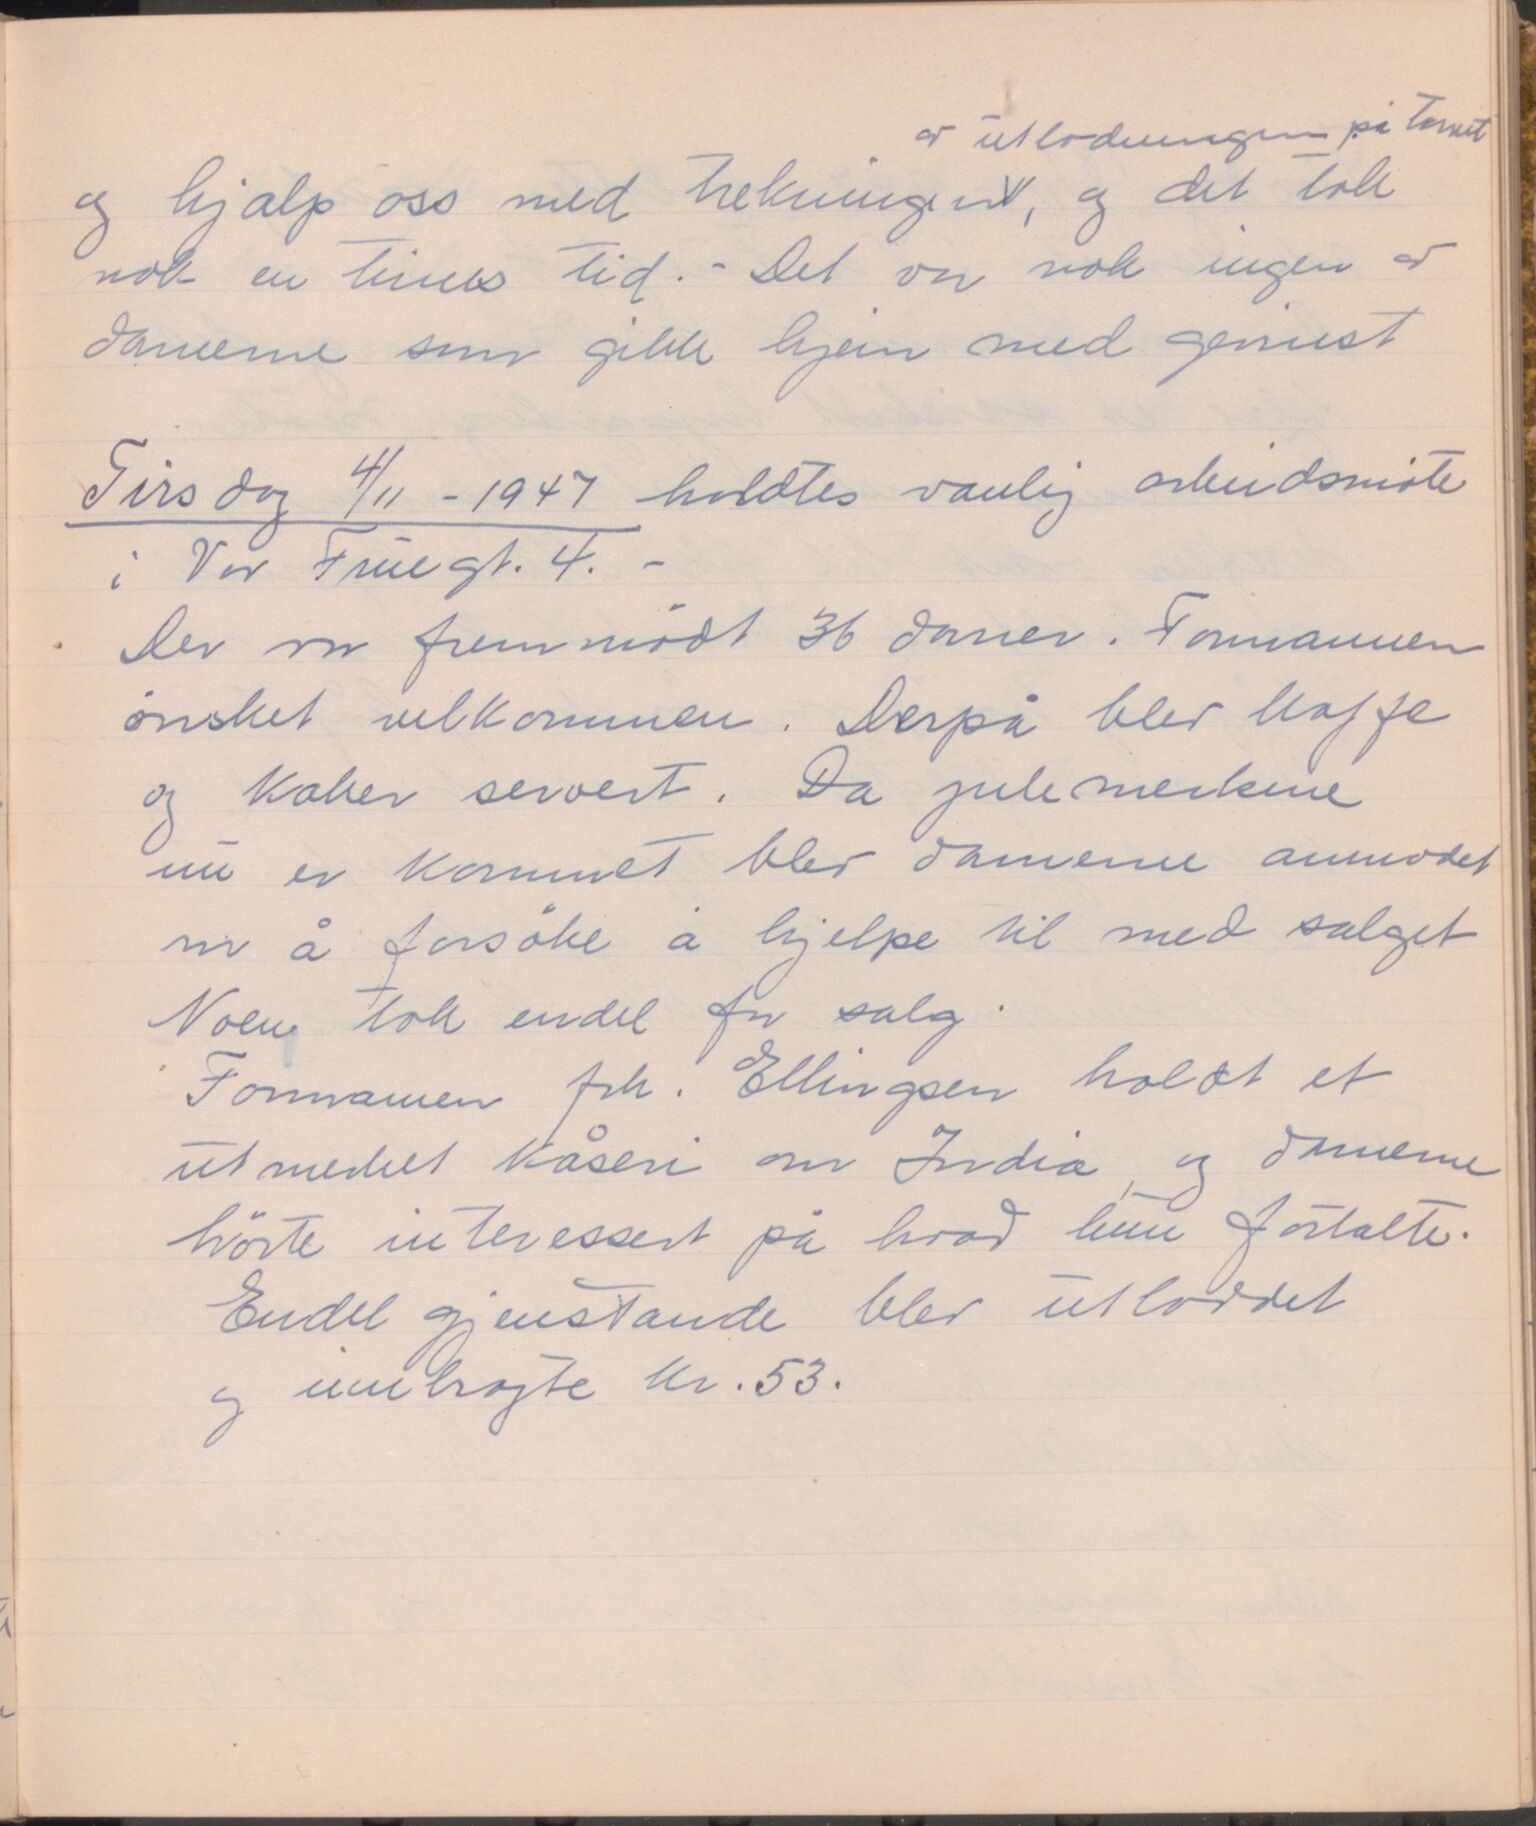 av utlodningen på Torvet
og hjalp oss med trekningen, og det tok
nok en times tid. - Det var nok ingen av
damerne som gikk hjem med gevinst
Tirsdag 4/11 - 1947 holdtes vanlig arbeidsmöte
i Vor Frue gt. 4. -
Der var fremmödt 36 damer. Formannen
önsket velkommen. Derpå blev kaffe
og kaker servert. Da julemerkene
nu er kommet blev damerne anmodet
om å forsöke å hjelpe til med salget
Noen tok endel for salg.
Formannen frk. Ellingsen holdt et
utmerket kåseri om India, og damerne
hörte interessert på hvad hun fortalte.
Endel gjenstande blev utloddet
og innbragte kr. 53.